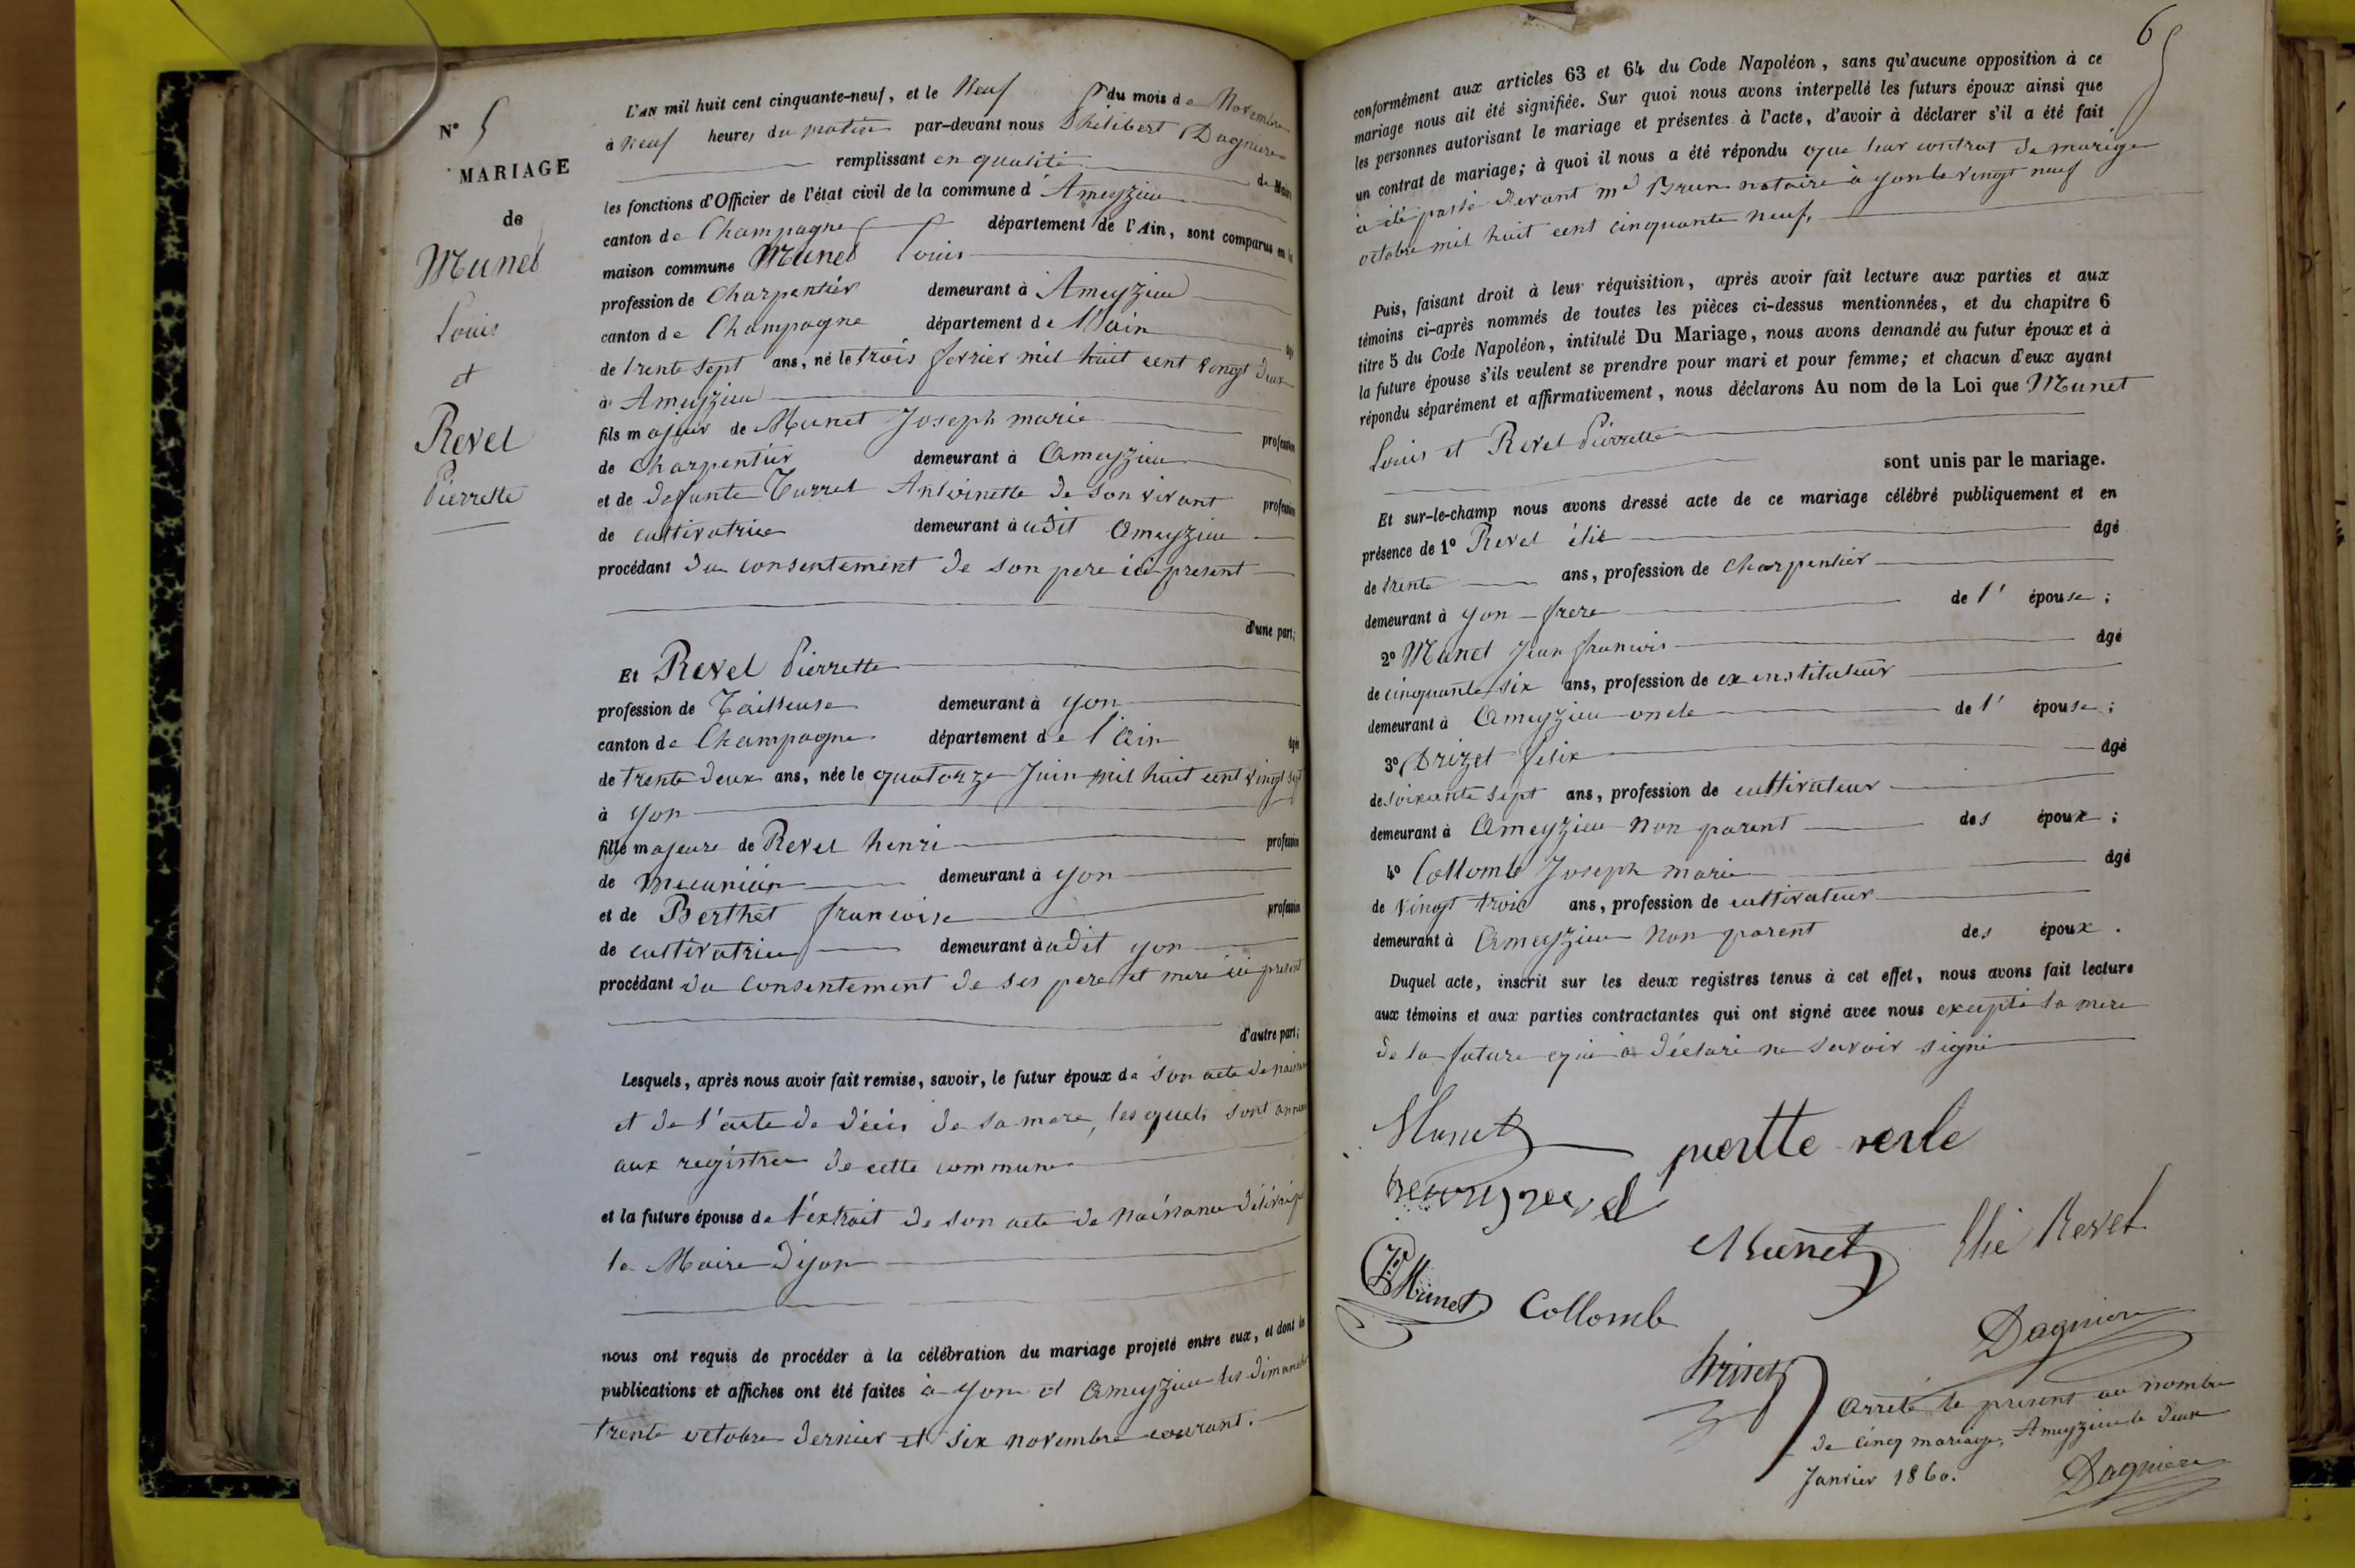 N° 5
MARIAGE
de
Munet
Louis
et
Revel
Pierrette
L'AN mil huit cent cinquante-neuf, et le Neuf du mois de Novembre
à neuf heures du matin par-devant nous Philibert Dagniere
remplissant en qualité de Maire
les fonctions d'Officier de l'état civil de la commune d'Ameyzieu
canton de Champagne département de l'Ain, sont comparus en la
maison commune Munet Louis
profession de Charpentier demeurant à Ameyzieu
canton de Champagne département de l'ain âgé
de trente sept ans, né le trois fevrier mil huit cent vingt deux
à Ameyzieu
fils majeur de Munet Joseph marie profession
de charpentier demeurant à Ameyzieu
et de defunte Turrel Antoinette de son vivant profession
de cultivatrice demeurant à udit Ameyzieu
procédant du consentement de son pere ici present
d'une part;
Et Revel Pierrette
profession de Tailleuse demeurant à yon
canton de Champagne département de l'ain âgée
de trente deux ans, née le quatorze Juin mil huit cent vingt sept
à yon
fille majeure de Revel henri profession
de mecunier demeurant à yon
et de Berthet francoise profession
de cultivatrice demeurant à udit yon
procédant du consentement de ses pere et mere ici present
d'autre part;
Lesquels, après nous avoir fait remise, savoir, le futur époux de son acte de naissance
et de l'acte de décés de sa mere, lesquels sont annexés
aux registres de cette commune
et la future épouse de l'extrait de son acte de naissance délivré par
le Maire d'yon
nous ont requis de procéder à la célébration du mariage projeté entre eux, et dont les
publications et affiches ont été faites à yon et Ameyzieu les dimanches
trente octobre dernier et six novembre courant.
65
conformément aux articles 63 et 64 du Code Napoléon, sans qu'aucune opposition à ce
mariage nous ait été signifiée. Sur quoi nous avons interpellé les futurs époux ainsi que
les personnes autorisant le mariage et présentes à l'acte, d'avoir à déclarer s'il a été fait
un contrat de mariage; à quoi il nous a été répondu que leur contrat de mariage
à été passé devant me Brun notaire à yon le vingt neuf
octobre mil huit cent cinquante neuf.
Puis, faisant droit à leur réquisition, après avoir fait lecture aux parties et aux
témoins ci-après nommés de toutes les pièces ci-dessus mentionnées, et du chapitre 6
titre 5 du Code Napoléon, intitulé Du Mariage, nous avons demandé au futur époux et à
la future épouse s'ils veulent se prendre pour mari et pour femme; et chacun d'eux ayant
répondu séparément et affirmativement, nous déclarons Au nom de la Loi que Munet
Louis et Revel Pierrette
sont unis par le mariage.
Et sur-le-champ nous avons dressé acte de ce mariage célébré publiquement et en
présence de 1° Revel élie âgé
de trente ans, profession de charpentier
demeurant à yon frere de l' épouse;
2° Munet Jean francois âgé
de cinquante six ans, profession de ex instituteur
demeurant à Ameyzieu oncle de l' épouse;
3° Drizet félix âgé
de soixante sept ans, profession de cultivateur
demeurant à Ameyzieu non parent des époux;
4° Collomb Joseph marie âgé
de vingt trois ans, profession de cultivateur
demeurant à Ameyzieu non parent des époux.
Duquel acte, inscrit sur les deux registres tenus à cet effet, nous avons fait lecture
aux témoins et aux parties contractantes qui ont signé avec nous excepté la mere
de la future qui a déclaré ne savoir signé
Munet pierttte revle
revel
Munet Elie Revel
Munet Collomb
Dagniere
Drizet
Arrêté le present au nombre
de Cinq mariages, Ameyzieu le deux
Janvier 1860.
Dagniere